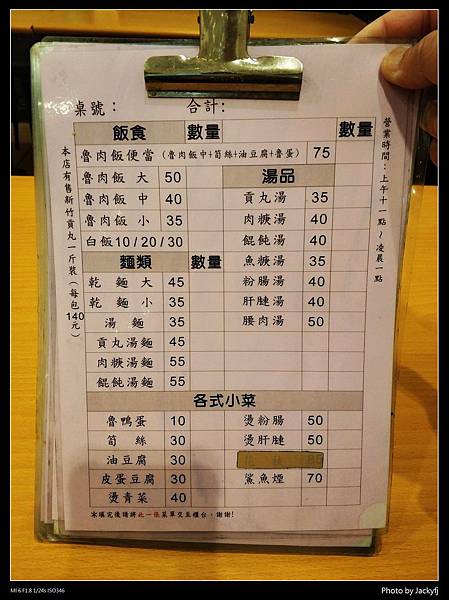 桌號： 合計：
飯食 數量 數量
魯肉飯便當（魯肉飯中+筍絲+油豆腐+魯蛋） 75
魯肉飯 大 50 湯品
魯肉飯 中 40 貢丸湯 35
魯肉飯 小 35 肉羹湯 40
白飯10/20/30 餛飩湯 40
麵類 數量 魚羹湯 35
乾 麵 大 45 粉腸湯 40
乾 麵 小 35 肝腱湯 40
湯 麵 35 腰肉湯 50
貢丸湯麵 45
肉羹湯麵 55
餛飩湯麵 55
各式小菜
魯鴨蛋 10 燙粉腸 50
筍 絲 30 燙肝腱 50
油豆腐 30
皮蛋豆腐 30 鯊魚煙 70
燙青菜 40
※填完後請將此一張菜單交至櫃台，謝謝!
本店有售新竹貢丸一斤裝（每包140元）
營業時間：上午十一點～凌晨一點
MI 6 F1.8 1/24s ISO346
Photo by Jackyfj